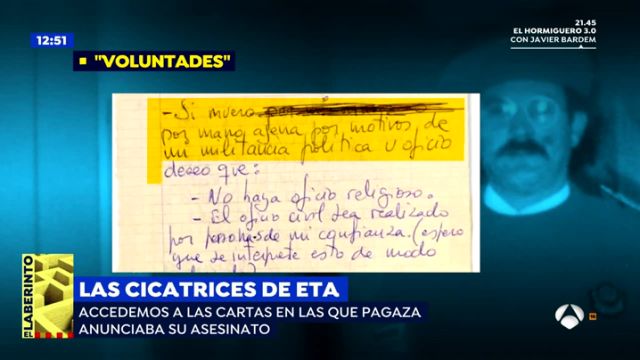 21.45
EL HORMIGUERO 3.0
CON JAVIER BARDEM
12:51
"VOLUNTADES"
- Si muero
por mano ajena por motivos de
mi militancia política u oficio
deseo que:
- No haya oficio religioso.
- El oficio civil sea realizado
por personas de mi confianza. (espero
que se interprete esto de modo
EL LABERINTO
LAS CICATRICES DE ETA
ACCEDEMOS A LAS CARTAS EN LAS QUE PAGAZA
ANUNCIABA SU ASESINATO